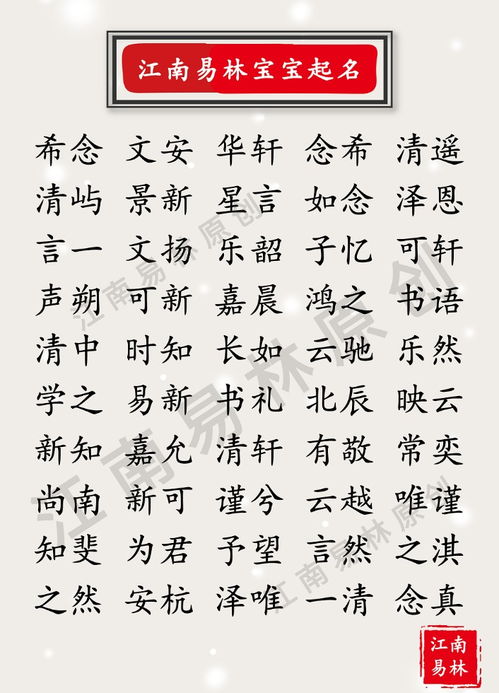 江南易林宝宝起名
希念 文安 华轩 念希 清遥
清屿 景新 星言 如念 泽恩
言一 文扬 乐韶 子忆 可轩
声朔 可新 嘉晨 鸿之 书语
清中 时知 长如 云驰 乐然
学之 易新 书礼 北辰 映云
新知 嘉允 清轩 有敬 常奕
尚南 新可 谨兮 云越 唯谨
知斐 为君 予望 言然 之淇
之然 安杭 泽唯 一清 念真
江南易林原创
江南易林原创
江南易林原创
江南
易林